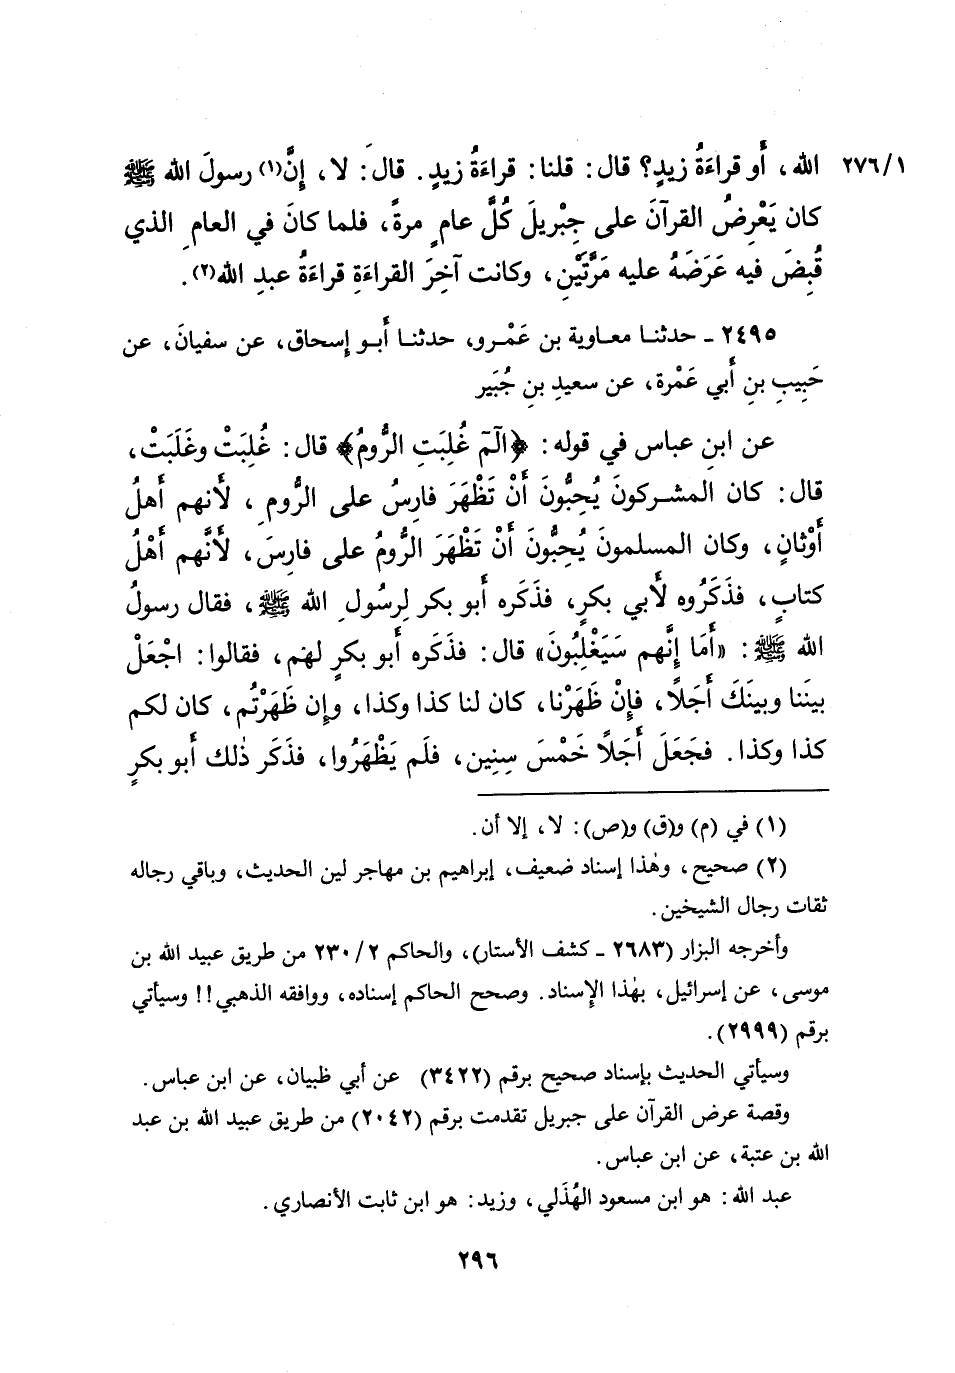 ٢٧٦/١ الله، أو قراءَةُ زيدٍ؟ قال: قلنا: قراءَةُ زيدٍ. قال: لا، إنَّ(١) رسولَ الله ﷺ
كان يَعْرِضُ القرآنَ على جِبْريلَ كُلَّ عامٍ مرةً، فلما كانَ في العامِ الذي
قُبِضَ فيه عَرَضَهُ عليه مَرَّتَيْنِ، وكانت آخِرَ القراءَةِ قراءَةُ عبدِ الله(٢).
٢٤٩٥ ـ حدثنا معاوية بن عَمْرو، حدثنا أبو إسحاق، عن سفيانَ، عن
حَبِيبِ بنِ أبي عَمْرة، عن سعيدِ بنِ جُبَير
عن ابنِ عباس في قوله: ﴿الٓمٓ غُلِبَتِ الرُّومُ﴾ قال: غُلِبَتْ وغَلَبَتْ،
قال: كان المشركونَ يُحِبُّونَ أنْ تَظْهَرَ فارِسُ على الرُّومِ، لأنهم أهلُ
أوْثانٍ، وكان المسلمونَ يُحِبُّونَ أنْ تَظْهَرَ الرُّومُ على فارِسَ، لأنَّهم أهْلُ
كتابٍ، فذَكَرُوه لأبي بكرٍ، فذَكَره أبو بكر لِرسُولِ الله ﷺ، فقال رسولُ
الله ﷺ: «أمَا إنَّهم سَيَغْلِبُونَ» قال: فذَكَره أبو بكرٍ لهم، فقالوا: اجْعَلْ
بينَنا وبينَكَ أجَلاً، فإنْ ظَهَرْنا، كان لنا كذا وكذا، وإن ظَهَرْتُم، كان لكم
كذا وكذا. فجَعَلَ أجَلاً خَمْسَ سِنِين، فلَم يَظْهَرُوا، فذَكَر ذٰلك أبو بكرٍ
(١) في (م) و(ق) و(ص): لا، إلا أن.
(٢) صحيح، وهٰذا إسناد ضعيف، إبراهيم بن مهاجر لين الحديث، وباقي رجاله
ثقات رجال الشيخين.
وأخرجه البزار (٢٦٨٣ ـ كشف الأستار)، والحاكم ٢٣٠/٢ من طريق عبيد الله بن
موسى، عن إسرائيل، بهٰذا الإسناد. وصحح الحاكم إسناده، ووافقه الذهبي!! وسيأتي
برقم (٢٩٩٩).
وسيأتي الحديث بإسناد صحيح برقم (٣٤٢٢) عن أبي ظبيان، عن ابن عباس.
وقصة عرض القرآن على جبريل تقدمت برقم (٢٠٤٢) من طريق عبيد الله بن عبد
الله بن عتبة، عن ابن عباس.
عبد الله: هو ابن مسعود الهُذَلي، وزيد: هو ابن ثابت الأنصاري.
٢٩٦